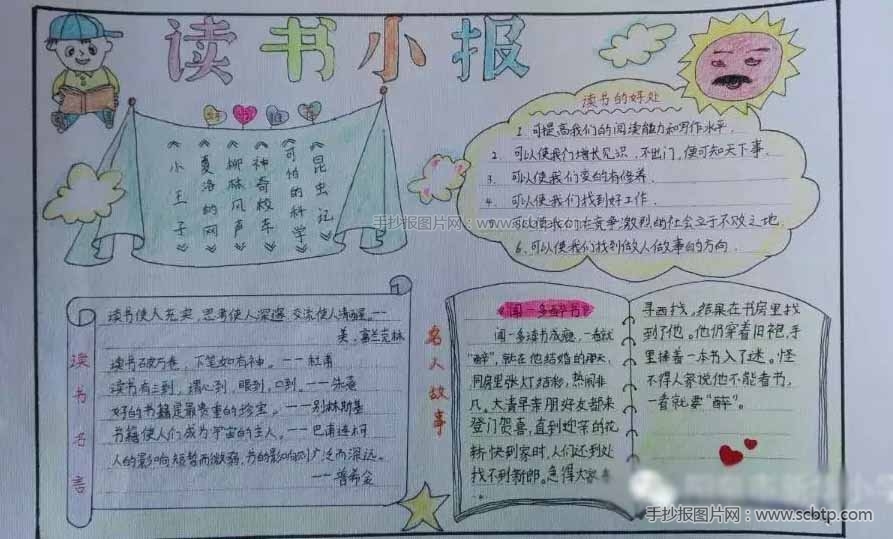 读书小报
好书推荐
《昆虫记》
《可怕的科学》
《神奇校车》
《柳林风声》
《夏洛的网》
《小王子》
读书的好处
1. 可提高我们的阅读能力和写作水平.
2. 可以使我们增长见识,不出门,便可知天下事.
3. 可以使我们变的有修养.
4. 可以使我们找到好工作.
5. 可以使我们在竞争激烈的社会立于不败之地.
6. 可以使我们找到做人做事的方向.
手抄报图片网:www.scbtp.com
读书名言
读书使人充实,思考使人深邃,交流使人清醒。——
美.富兰克林
读书破万卷,下笔如有神。——杜甫
读书有三到,谓心到,眼到,口到。——朱熹
好的书籍是最贵重的珍宝。——别林斯基
书籍使人们成为宇宙的主人。——巴甫连柯
人的影响短暂而微弱,书的影响则广泛而深远。
——普希金
名人故事
《闻一多醉书》
闻一多读书成瘾,一看就
“醉”,就在他结婚的那天,
洞房里张灯结彩,热闹非
凡。大清早亲朋好友都来
登门贺喜,直到迎亲的花
轿快到家时,人们还到处
找不到新郎。急得大家
寻西找,结果在书房里找
到了他。他仍穿着旧袍,手
里捧着一本书入了迷。怪
不得人家说他不能看书,
一看就要“醉”。
手抄报图片网:www.scbtp.com